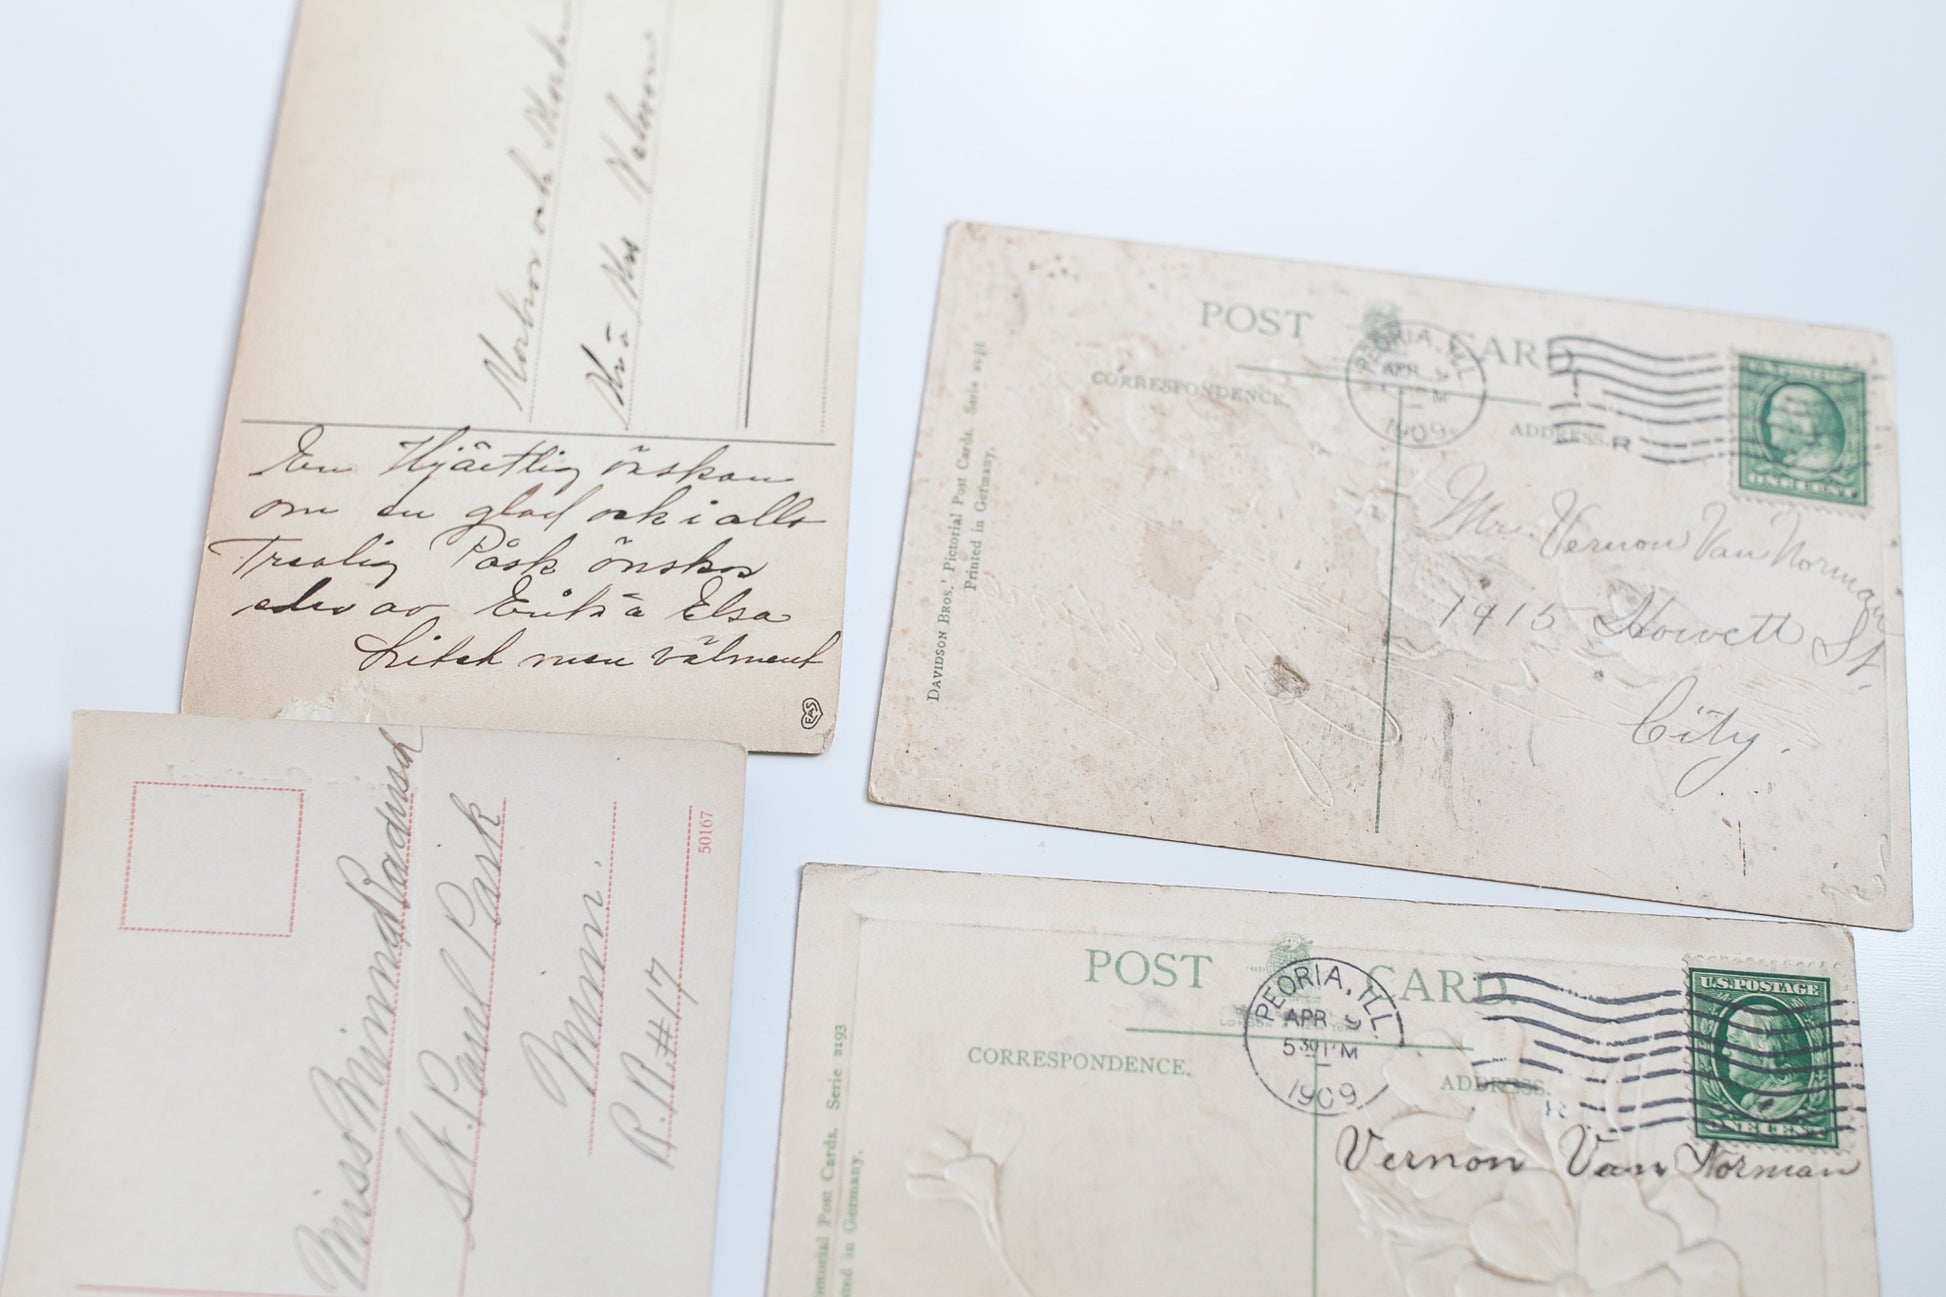 Morbror och
Mr & Mrs
En Hjärtlig önskan
om en glad och i allo
Trevlig Påsk önskas
eder av Erik & Elsa
Litet men välment
EAS
Miss Minna
St. Paul Park
Minn.
R.R. #17
50167
POST CARD
PEORIA, ILL
APR 9
1909
CORRESPONDENCE.
ADDRESS.
ONE CENT
Mr. Vernon Van Norman
1915 Howett St.
City.
DAVIDSON BROS.' Pictorial Post Cards. Serie 2191
Printed in Germany.
POST CARD.
PEORIA, ILL
APR 9
5 30 PM
1909
U.S. POSTAGE
CORRESPONDENCE.
ADDRESS.
ONE CENT
Vernon Van Norman
Pictorial Post Cards. Serie 2193
Printed in Germany.